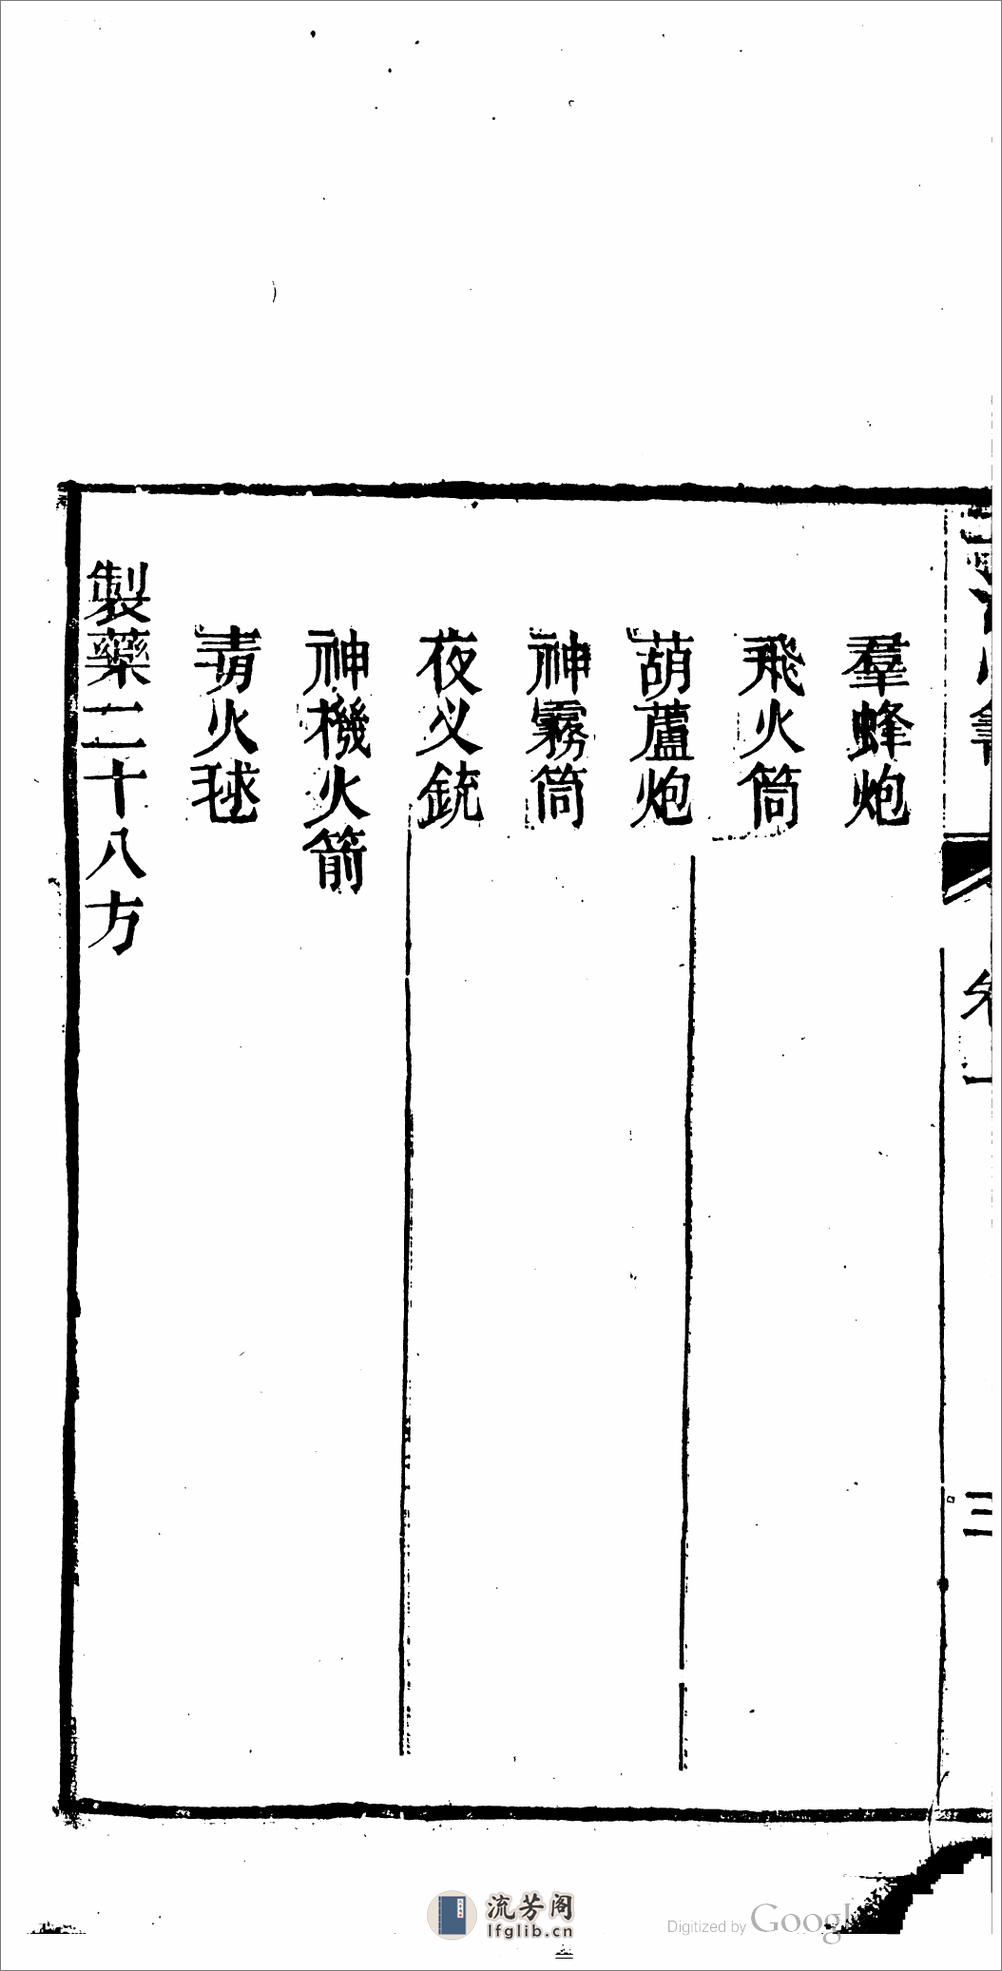 羣蜂炮
飛火筒
葫蘆炮
神霧筒
夜义銃
神機火箭
青火毬
製藥二十八方
卷一
三
流芳阁
lfglib.cn
Digitized by Google